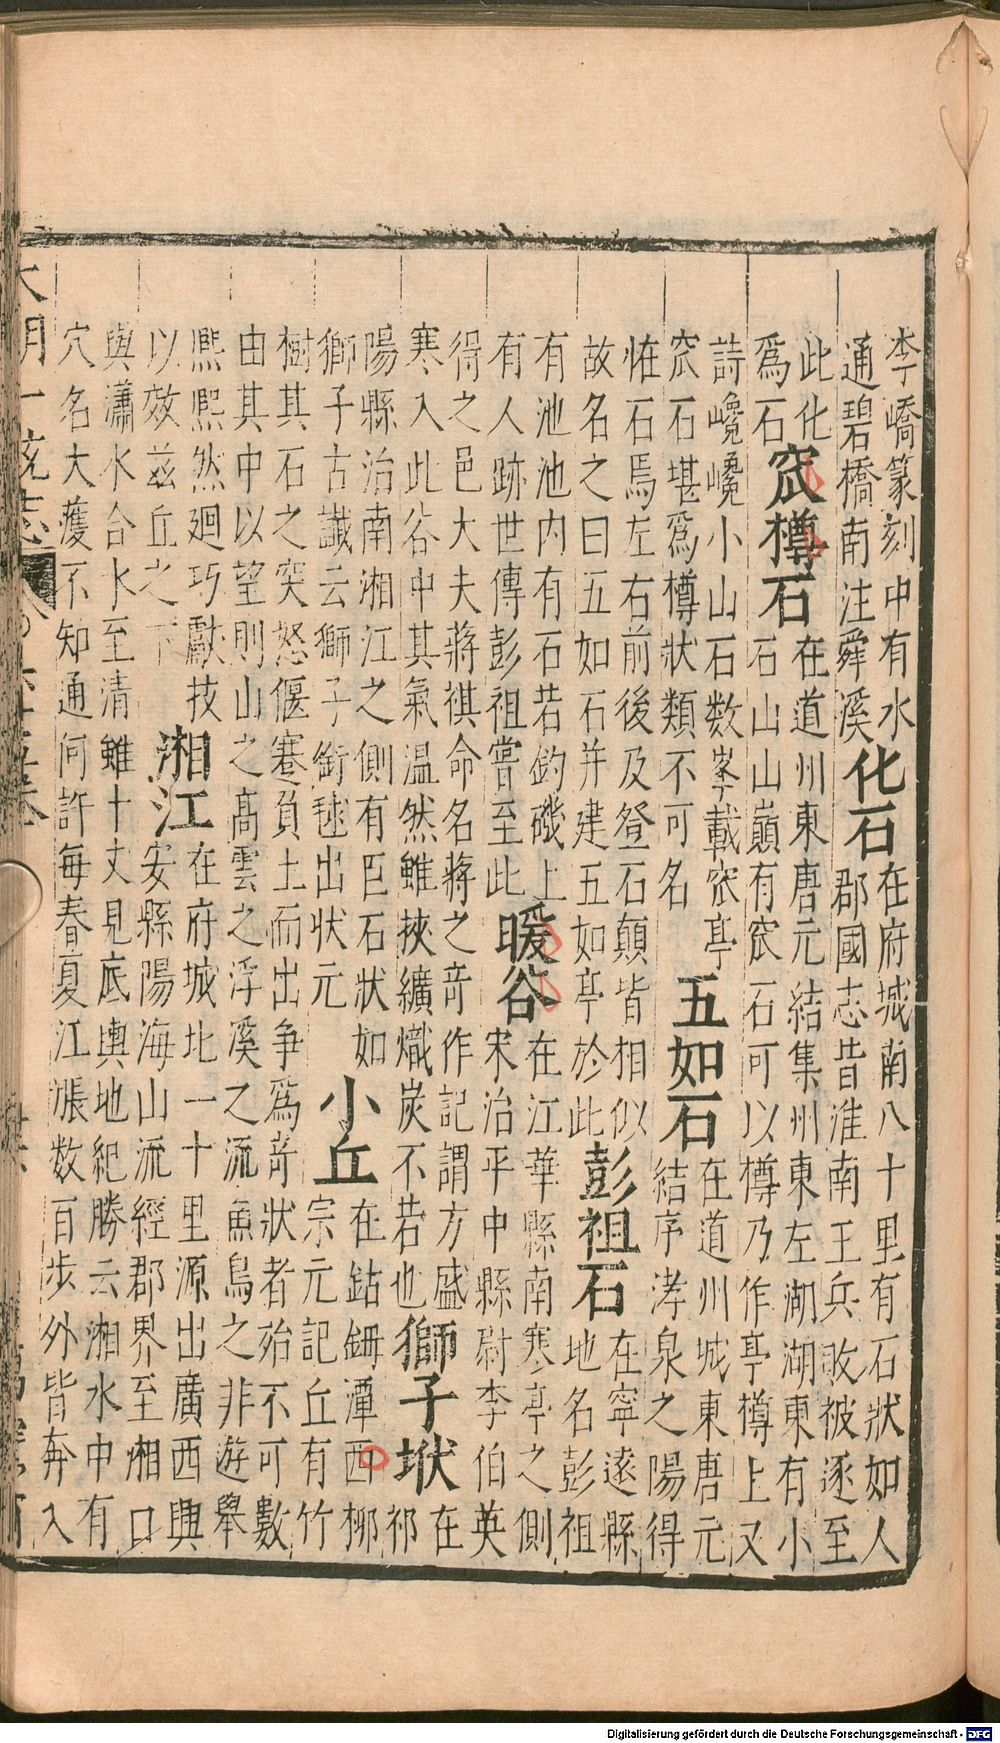 李嶠篆刻中有水
通碧橋南注舜溪
化石
在府城南八十里有石狀如人
郡國志昔淮南王兵敗被逐至
此化
爲石
窊樽石
在道州東唐元結集州東左湖湖東有小
石山山巔有窊石可以樽乃作亭樽上又
詩巉巉小山石数峯載窊亭
窊石堪爲樽狀類不可名
五如石
在道州城東唐元
結序涍泉之陽得
恠石焉左右前後及登石顛皆相似
故名之曰五如石并建五如亭於此
彭祖石
在寧遠縣
地名彭祖
有池池内有石若釣磯上
有人跡世傳彭祖嘗至此
暖谷
在江華縣南寒亭之側
宋治平中縣尉李伯英
得之邑大夫蔣祺命名蔣之竒作記謂方盛
寒入此谷中其氣温然雖挾纊熾炭不若也
獅子垘
在
祁
陽縣治南湘江之側有巨石狀如
獅子古讖云獅子銜毬出狀元
小丘
在鈷鉧潭西柳
宗元記丘有竹
樹其石之突怒偃蹇負土而出争爲竒狀者殆不可數
由其中以望則山之髙雲之浮溪之流魚鳥之非遊舉
熈熈然廻巧獻技
以效兹丘之下
湘江
在府城北一十里源出廣西興
安縣陽海山流經郡界至湘口
與瀟水合水至清雖十丈見底輿地紀勝云湘水中有
穴名大濩不知通何許毎春夏江漲数百步外皆奔入
大明一統志
Digitalisierung gefördert durch die Deutsche Forschungsgemeinschaft - DFG